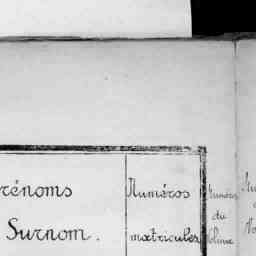 rénoms
Surnom.
Numéros
matricules
Numéros
du
Volume